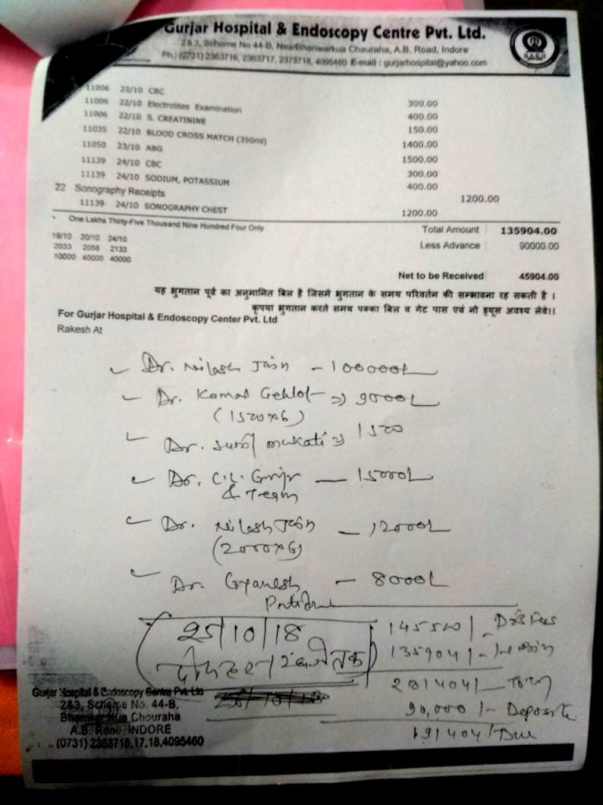 Gurjar Hospital & Endoscopy Centre Pvt. Ltd.
2&3, Scheme No 44-B, Near Bhanwarkua Chauraha, A.B. Road, Indore
Ph.: (0731) 2363716, 2363717, 2373718, 4095460 E-mail : gurjarhospital@yahoo.com
11006 23/10 CBC 300.00
11006 22/10 Electrolites Examination 400.00
11006 22/10 S. CREATININE 150.00
11035 22/10 BLOOD CROSS MATCH (350ml) 1400.00
11050 23/10 ABG 1500.00
11139 24/10 CBC 300.00
11139 24/10 SODIUM, POTASSIUM 400.00
22 Sonography Receipts 1200.00
11139 24/10 SONOGRAPHY CHEST 1200.00
One Lakhs Thirty-Five Thousand Nine Hundred Four Only
Total Amount 135904.00
18/10 20/10 24/10
Less Advance 90000.00
2033 2058 2133
10000 40000 40000
Net to be Received 45904.00
यह भुगतान पूर्व का अनुमानित बिल है जिसमे भुगतान के समय परिवर्तन की सम्भावना रह सकती है ।
कृपया भुगतान करते समय पक्का बिल व गेट पास एवं नो ड्यूस अवश्य लेवे।।
For Gurjar Hospital & Endoscopy Center Pvt. Ltd
Rakesh At
Dr. Nilesh Jain - 100000/-
Dr. Kamal Gehlot => 9000/-
(1500x6)
Dr. Sunil mukati => 1500
Dr. C.L. Gurjr — 15000/-
& Team
Dr. Nilesh Jain — 12000/-
(2000x6)
Dr. Gyanesh - 8000/-
Patidar
25/10/18
दोपहर 2 बजे तक
145500/- Drs Fees
135904/-
281404/- Total
90,000/- Deposite
191404/- Due
Gurjar Hospital & Endoscopy Centre Pvt. Ltd
2&3, Scheme No. 44-B,
Bhanwarkua Chouraha
A.B. Road INDORE
(0731) 2363716,17,18,4095460